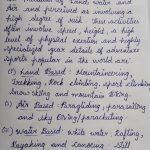 by land, water
and Air and perceived as involving a
high degree of risk. These activities
often involve speed, height, a high
level of physical exertion and highly
specialized gear details of adventure
sports popular in the world are:
i) Land Based: Mountaineering,
Trekking, Rock climbing, sport climbing
Snow skiing and mountain Biking.
ii) Air Based: Paragliding, parasailing
and sky diving/parachuting
iii) Water Based: White water Rafting,
Kayaking and Canoeing